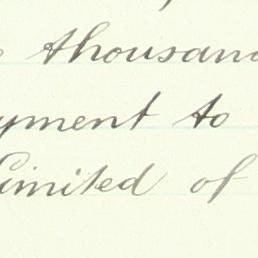 thousand
yment to
Limited of